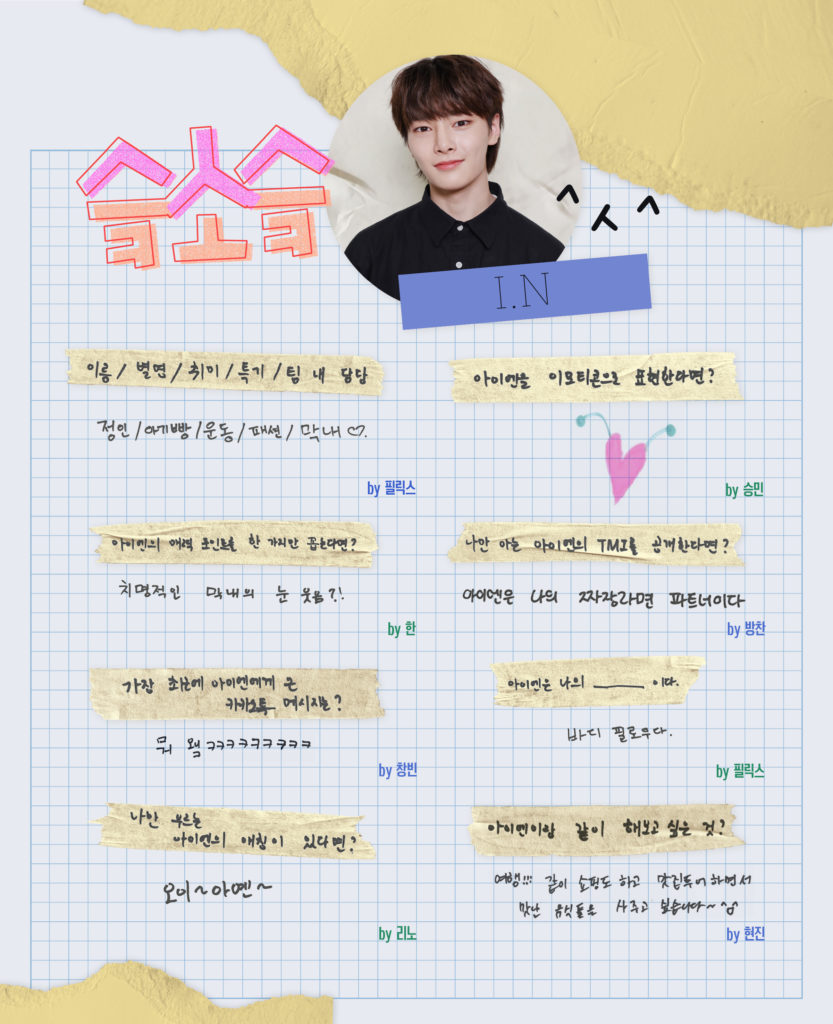 슼소슼
^ㅅ^
I.N
이름 / 별명 / 취미 / 특기 / 팀 내 담당
정인 / 아기빵 / 운동 / 패션 / 막내 ♡.
by 필릭스
아이엔을 이모티콘으로 표현한다면?
by 승민
아이엔의 매력 포인트를 한 가지만 꼽는다면?
치명적인 막내의 눈 웃음?!
by 한
나만 아는 아이엔의 TMI를 공개한다면?
아이엔은 나의 짜장라면 파트너이다
by 방찬
가장 최근에 아이엔에게 온
카카오톡 메시지는?
뭐 왴ㅋㅋㅋㅋㅋㅋㅋㅋㅋ
by 창빈
아이엔은 나의 ______ 이다.
바디 필로우다.
by 필릭스
나만 부르는
아이엔의 애칭이 있다면?
오이~아옌~
by 리노
아이엔이랑 같이 해보고 싶은 것?
여행!!! 같이 쇼핑도 하고 맛집투어 하면서
맛난 음식들을 사주고 싶습니다~ ^ㅅ^
by 현진